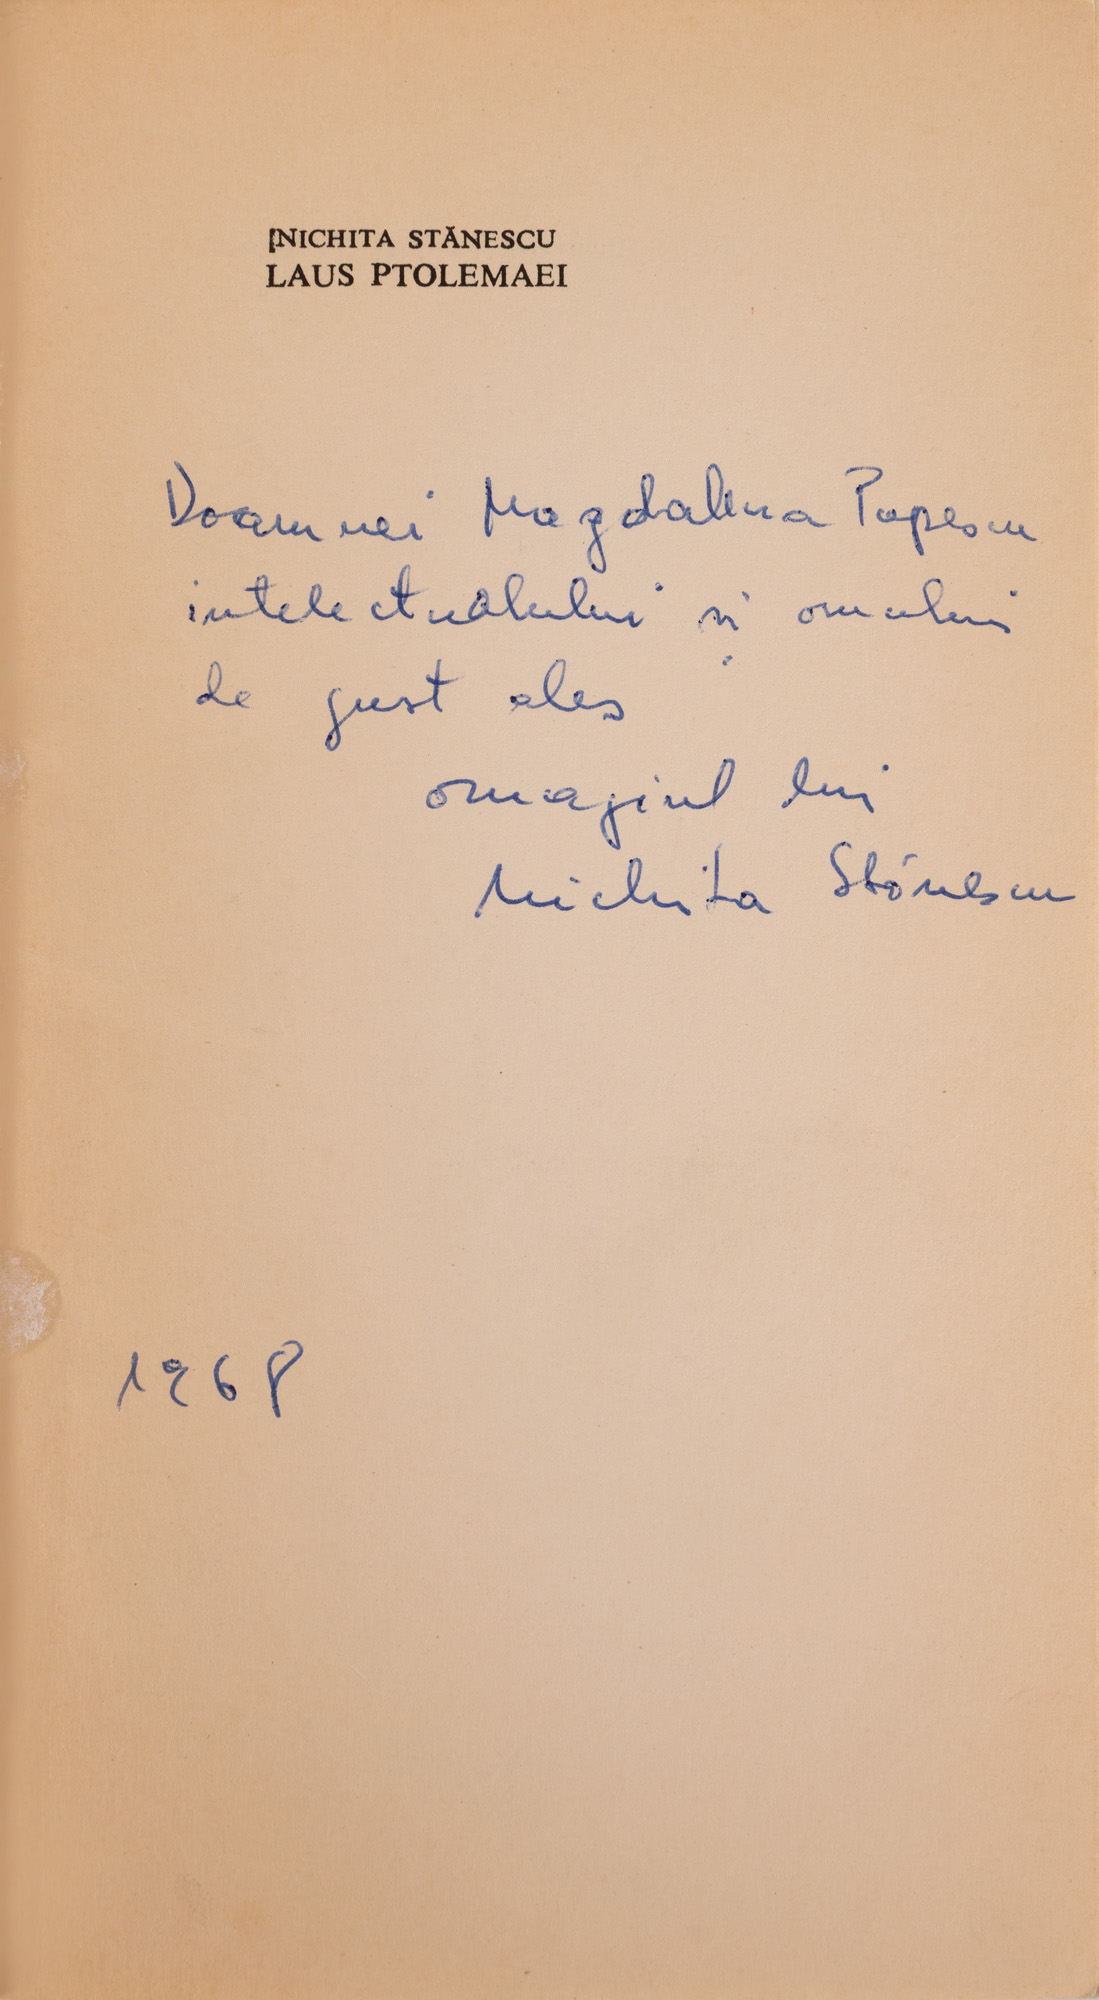 NICHITA STĂNESCU
LAUS PTOLEMAEI
Doamnei Magdalena Popescu
intelectualului și omului
de gust ales
omagiul lui
Nichita Stănescu
1968